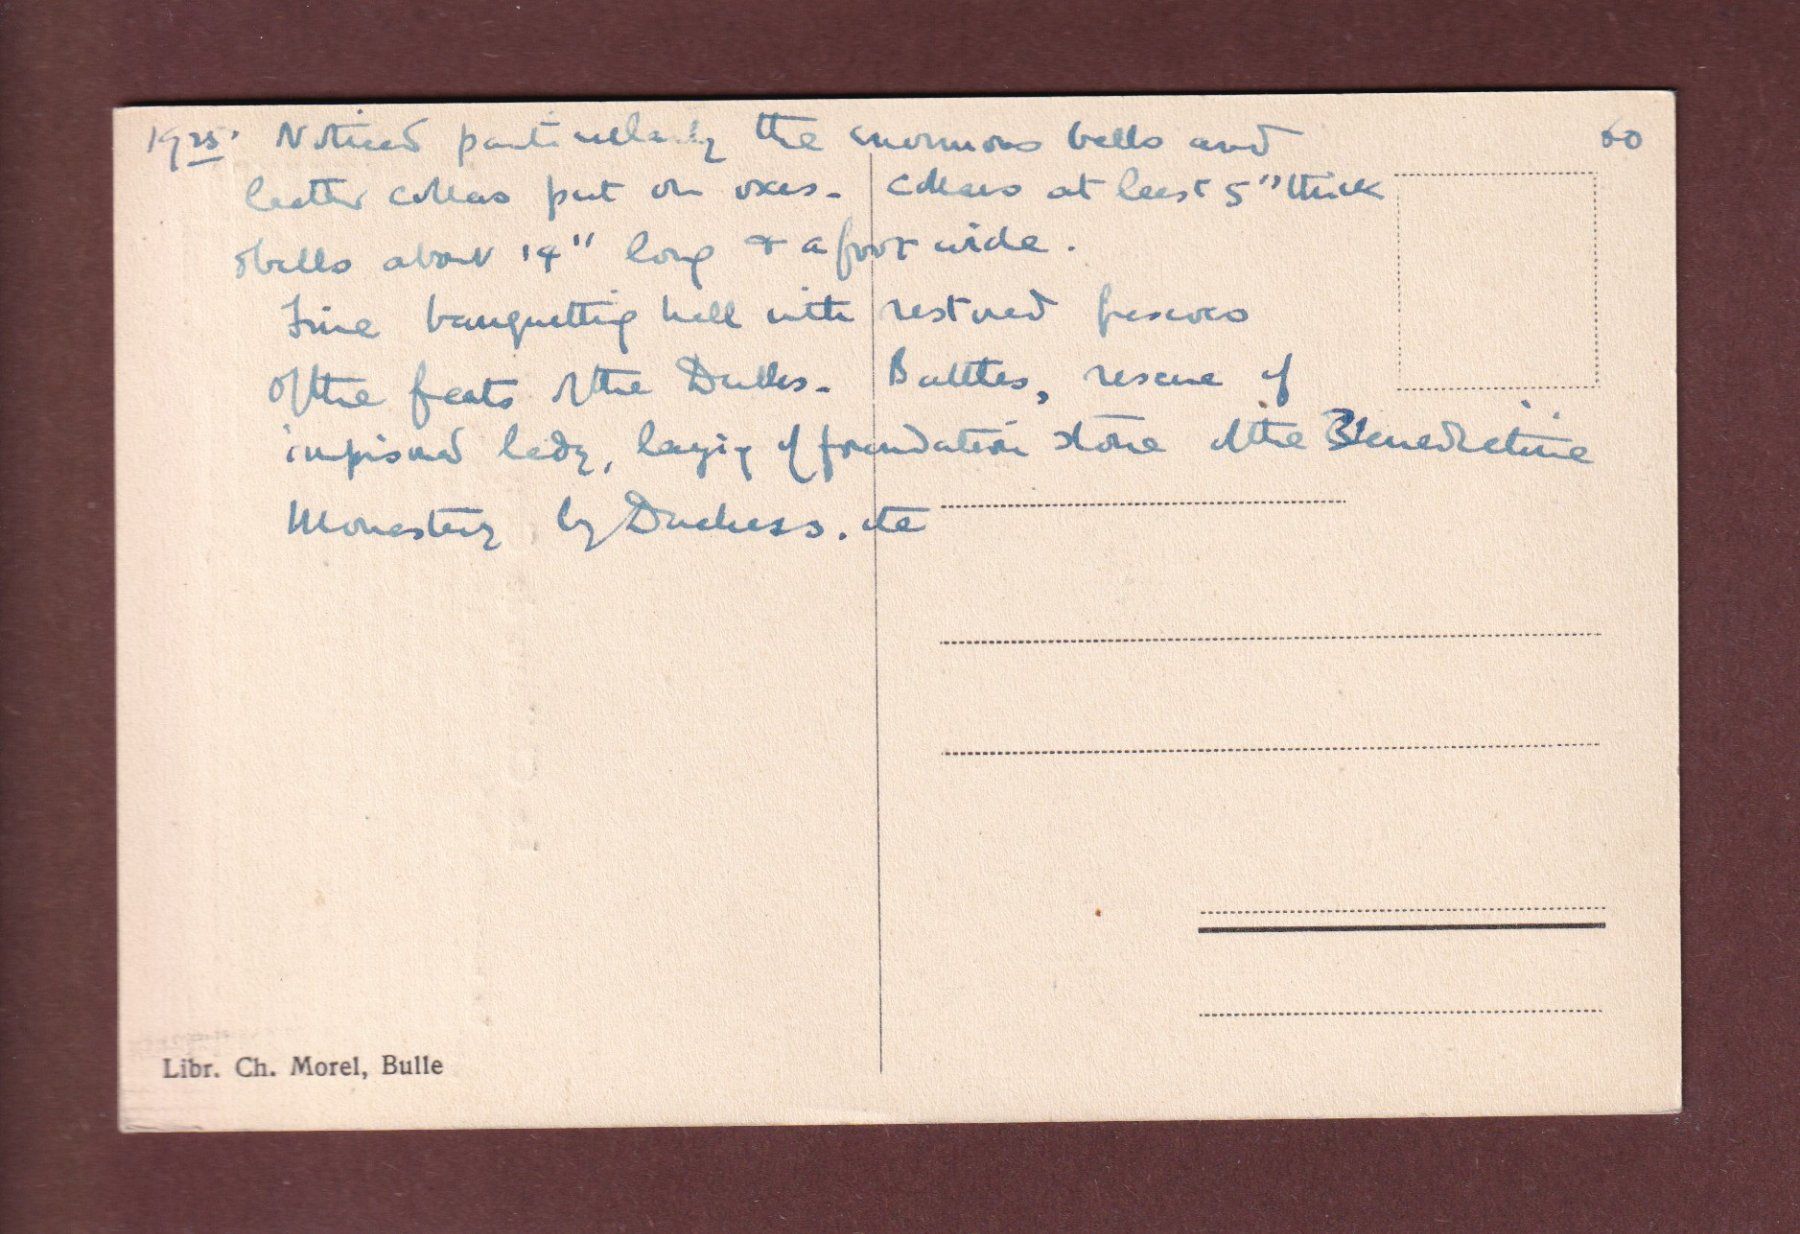 1925. Noticed particularly the enormous bells and
60
leather collars put on oxes. Collars at least 5" thick
& bells about 14" long & a foot wide.
Fine banquetting hall with restored frescoes
of the feats of the Dukes. Battles, rescue of
imprisoned lady, laying of foundation stone of the Benedictine
Monastery by Duchess. etc
Libr. Ch. Morel, Bulle